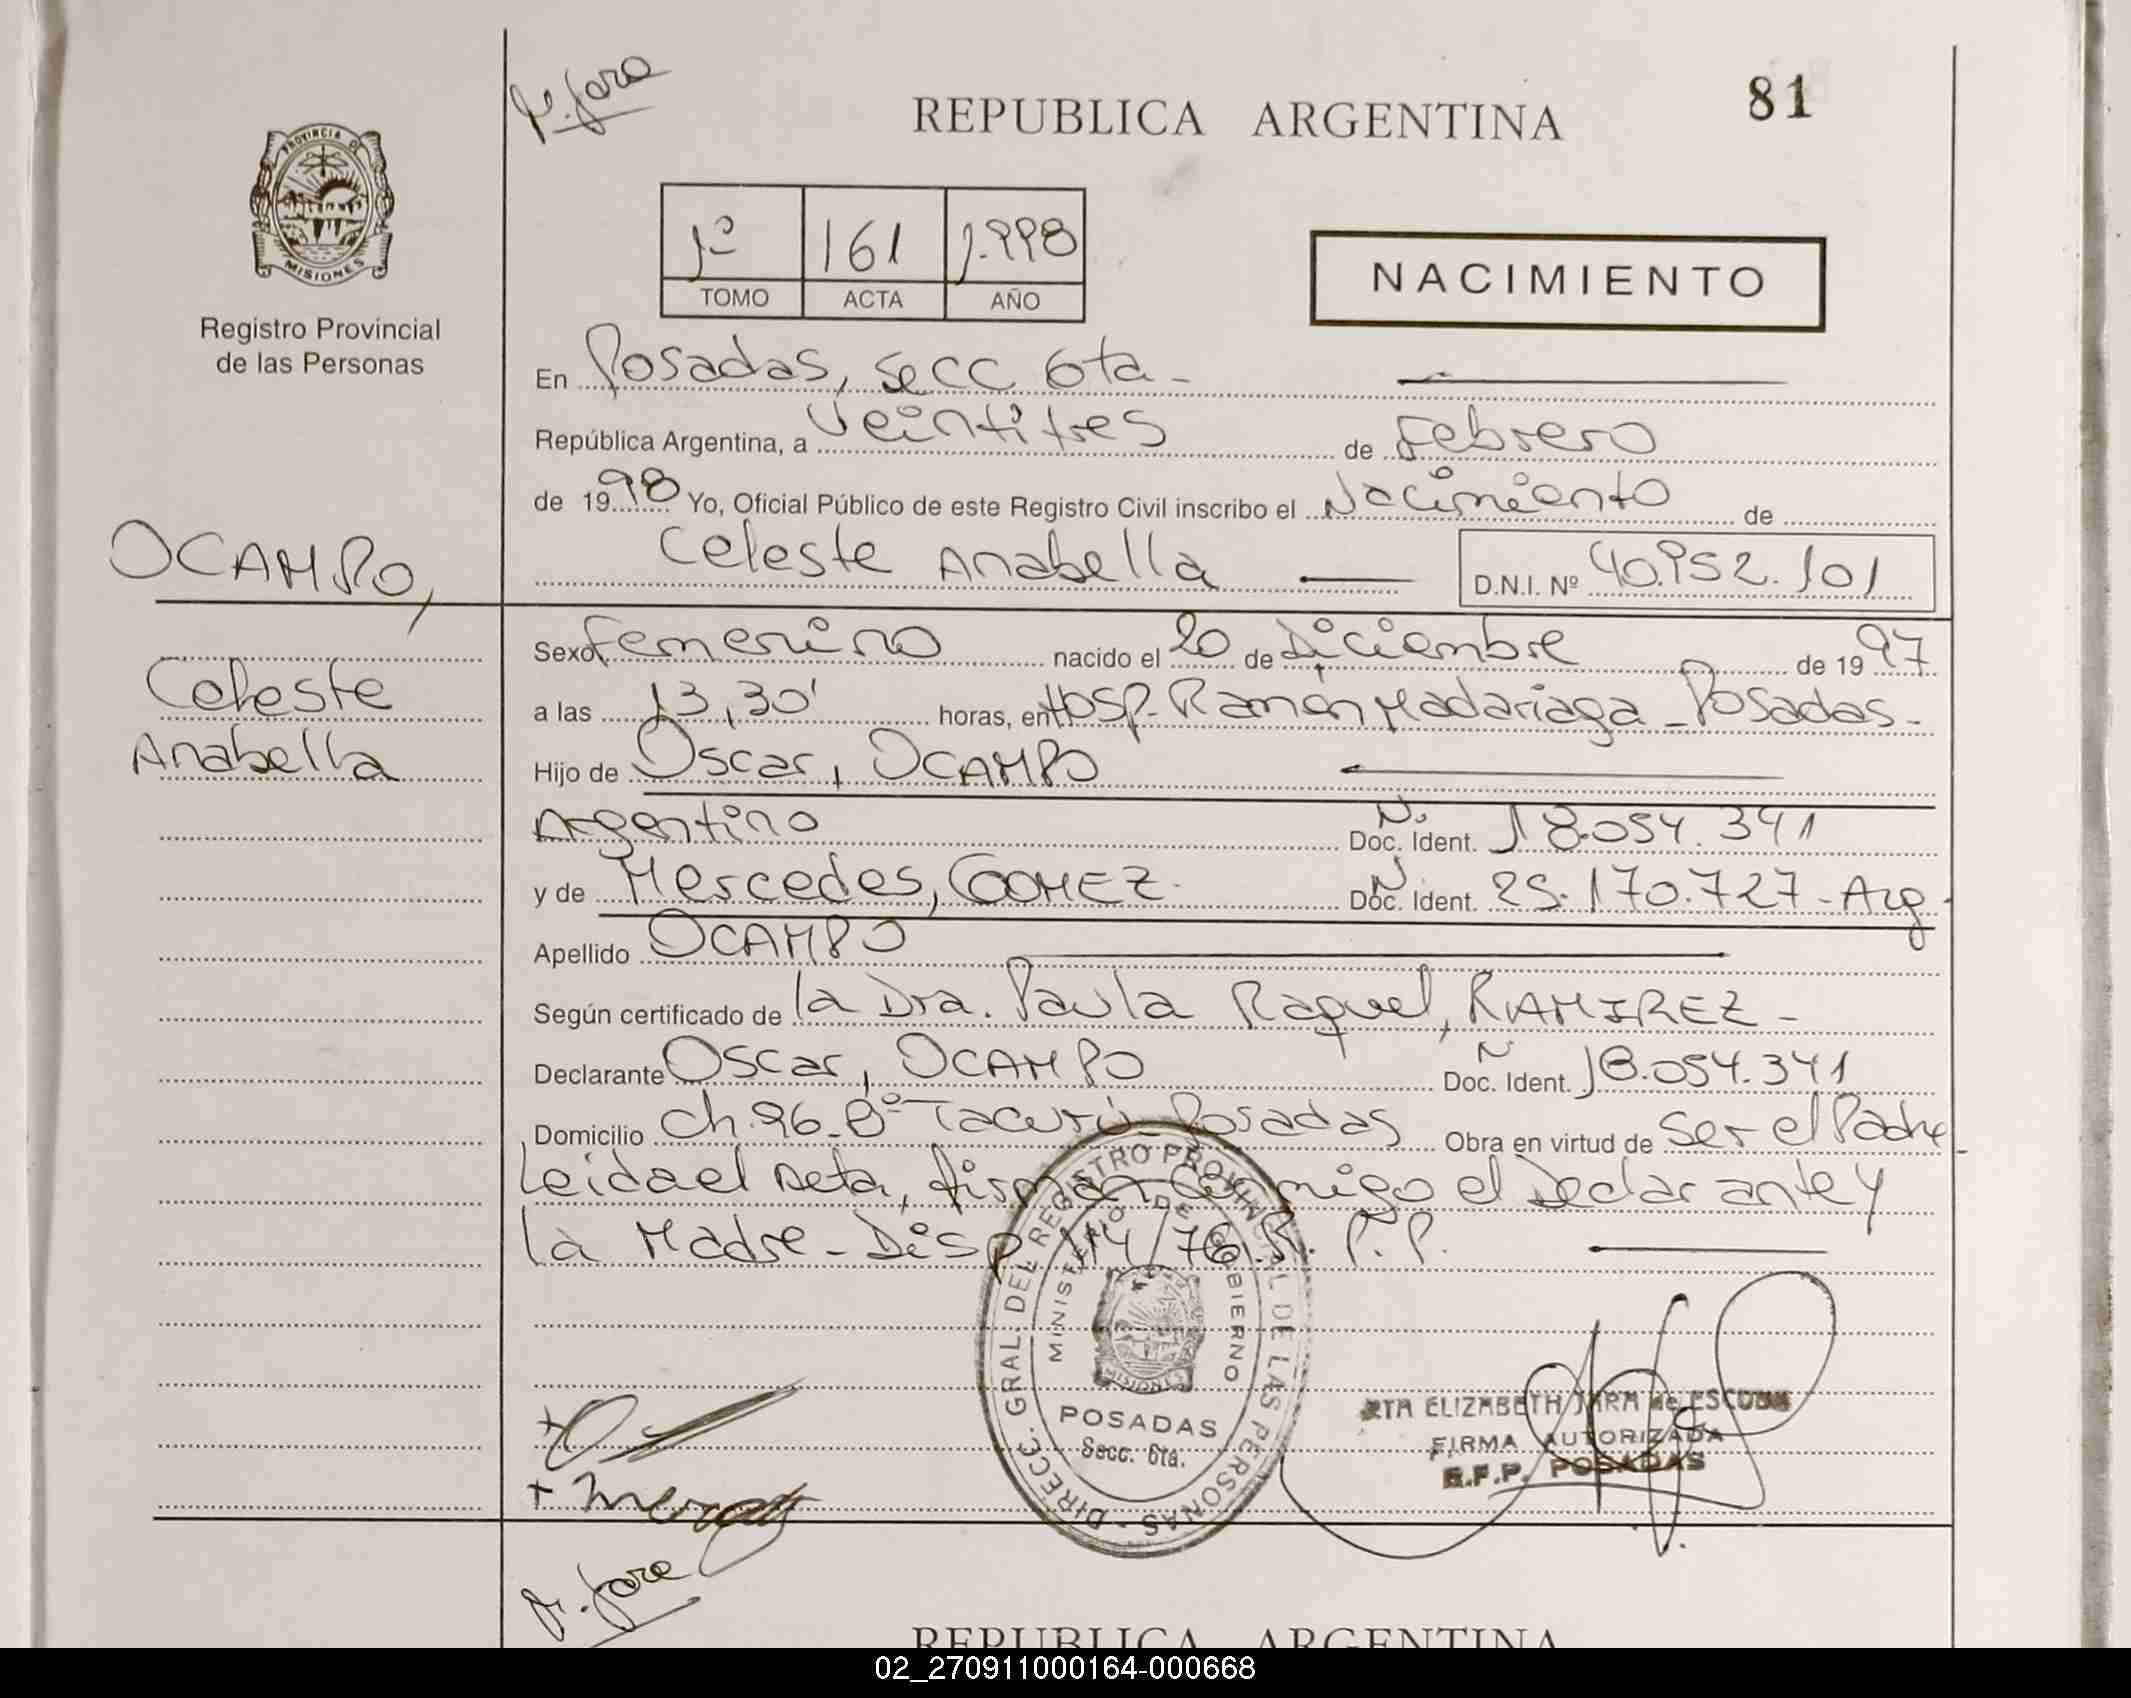 P. Jara
REPUBLICA ARGENTINA
81
PROVINCIA DE
MISIONES
Registro Provincial
de las Personas
1º 161 1.998
TOMO ACTA AÑO
NACIMIENTO
En Posadas, Secc 6ta-
República Argentina, a Veintitres de Febrero
de 1998 Yo, Oficial Público de este Registro Civil inscribo el Nacimiento de
Celeste Anabella D.N.I. Nº 40.952.101
OCAMPO,
Celeste
Anabella
Sexo Femenino nacido el 20 de Diciembre de 1997
a las 13,30' horas, en Hosp. Ramón Madariaga - Posadas-
Hijo de Oscar, OCAMPO
Argentino Nº Doc. Ident. 18.054.341
y de Mercedes, GOMEZ- Nº Doc. Ident. 25.170.727-Arg-
Apellido OCAMPO
Según certificado de la Dra. Paula Raquel, RAMIREZ-
Declarante Oscar, OCAMPO Nº Doc. Ident. 18.054.341
Domicilio Ch. 96-Bº Tacurú-Posadas Obra en virtud de Ser el Padre-
Leida el Acta, firman conmigo el Declarante y
la Madre- Disp. 114/76.R.P.P.
DIRECC. GRAL. DEL REGISTRO PROVINCIAL DE LAS PERSONAS -
MINISTERIO DE GOBIERNO
MISIONES
POSADAS
Secc. 6ta.
ELIZABETH JARA de
FIRMA AUTORIZADA
R.P.P. POSADAS
REPUBLICA ARGENTINA
02_270911000164-000668